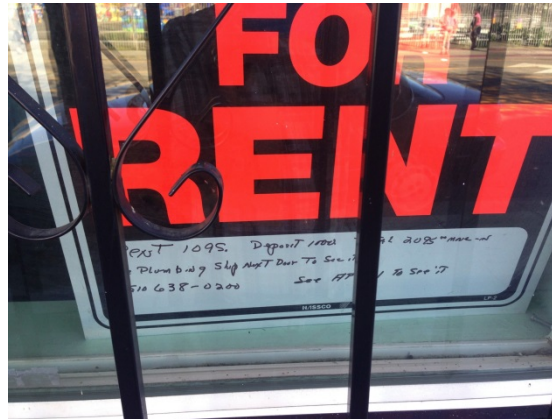 FO
RENT
1095. Deposit 2095 move-in
Plumbing Shop Next Door To See it
510 638-0200 See AP To See iT
HISSCO LP-2